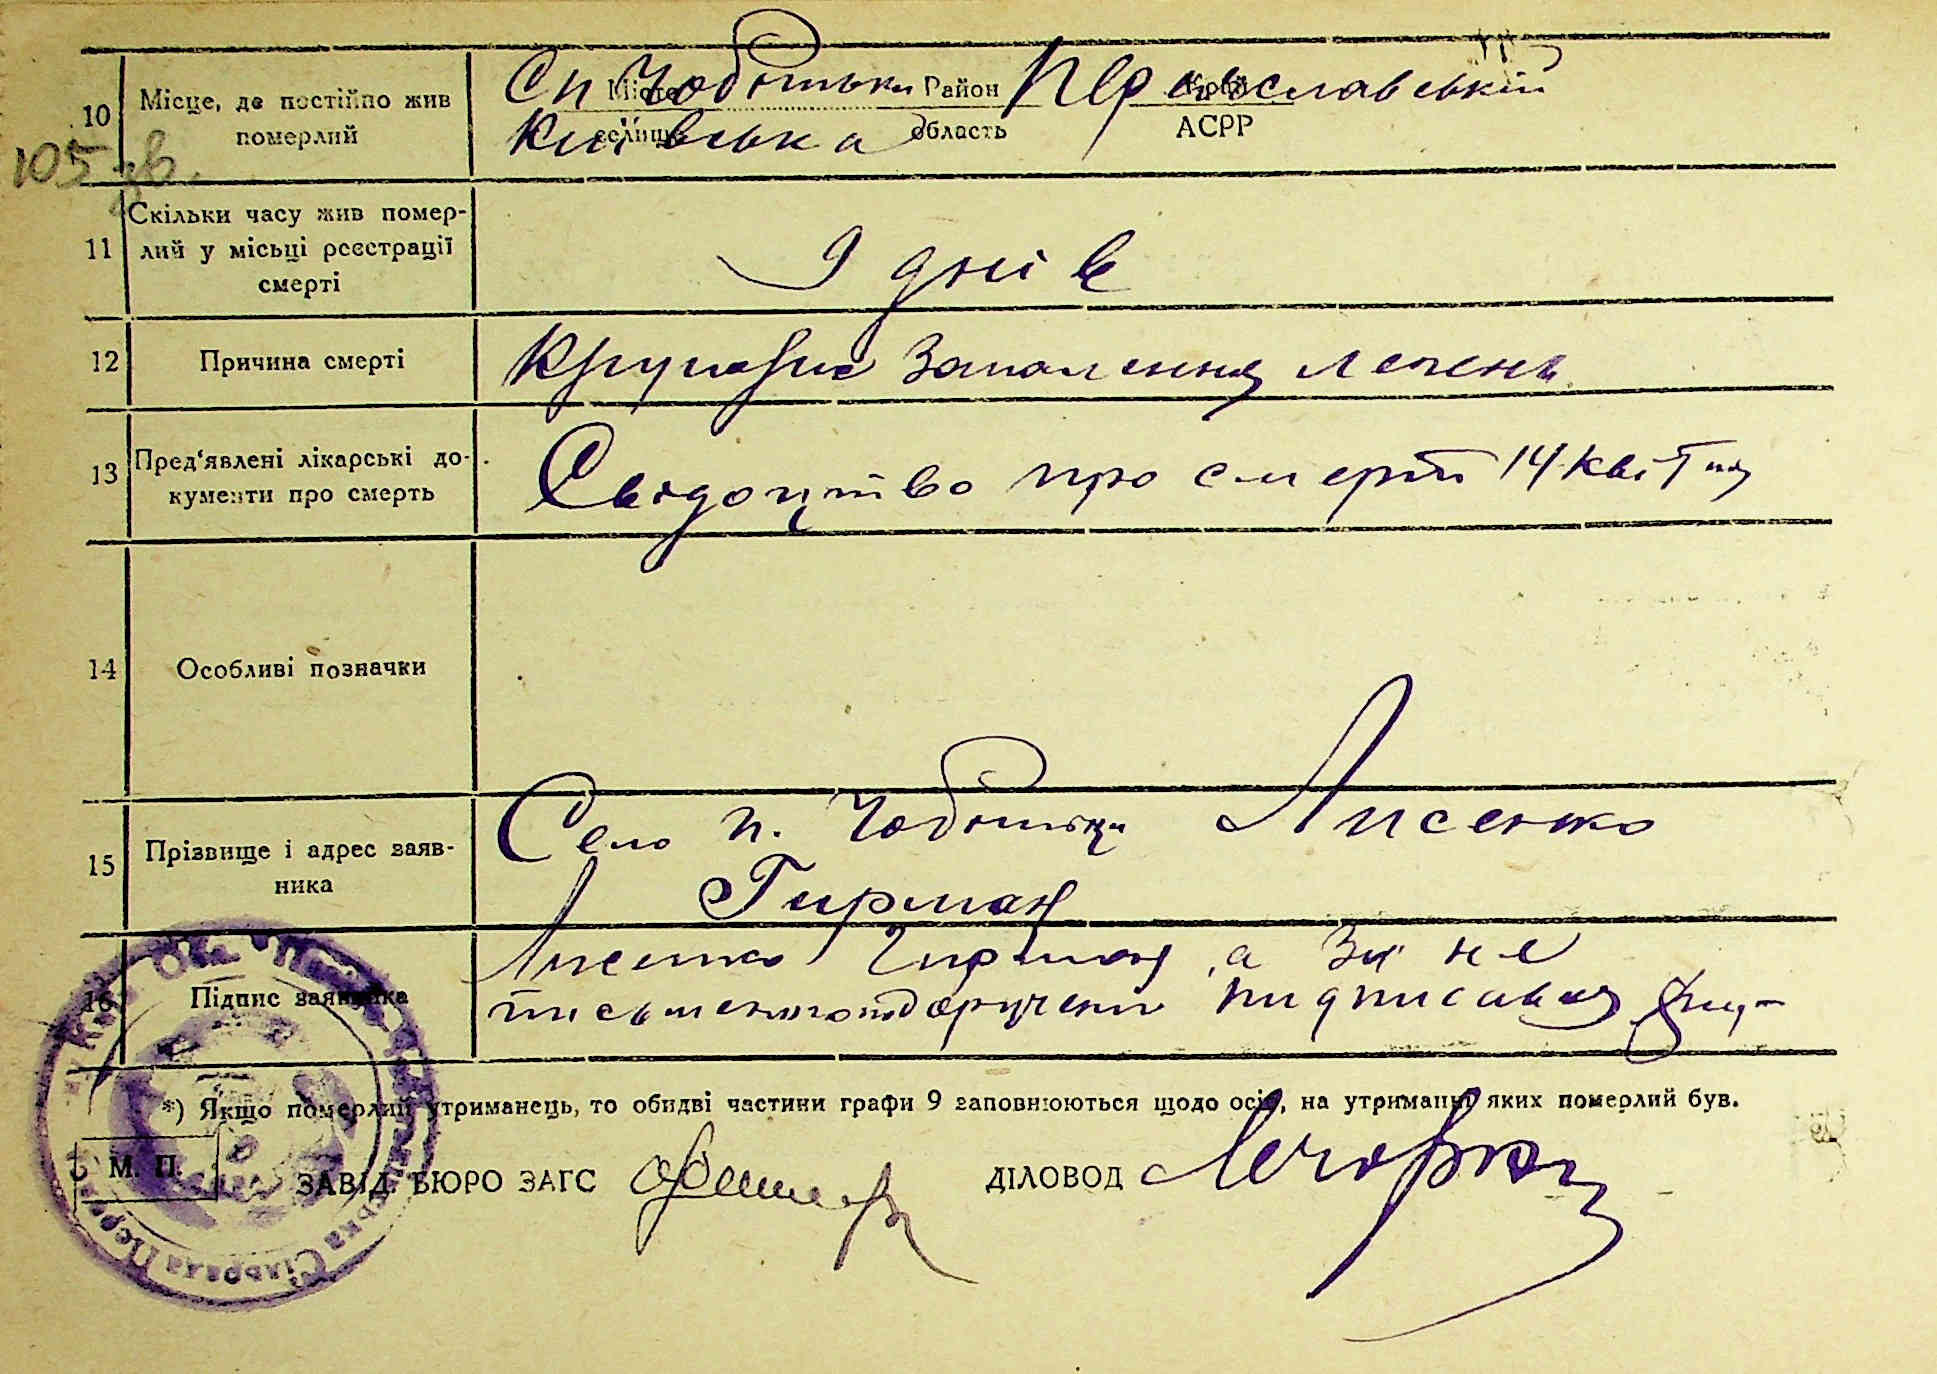 10 Місце, де постійно жив померлий
Сп Чобітьки Район Переяславській
Київська область АСРР
105 зв.
11 Скільки часу жив помер-
лий у місьці реєстрації
смерті
9 днів
12 Причина смерті
Крупозне запалення легень
13 Пред'явлені лікарські до-
кументи про смерть
Свідоцтво про смерть 14 квітня
14 Особливі позначки
15 Прізвище і адрес заяв-
ника
Село п. Чобітьки Лисенко
Гирман
16 Підпис заявника
Лисенко Гирман, а за не
письменого підписався
*) Якщо померлий утриманець, то обидві частини графи 9 заповнюються щодо осіб, на утриманні яких померлий був.
М. П.
ЗАВІД. БЮРО ЗАГС
ДІЛОВОД
Сільрада